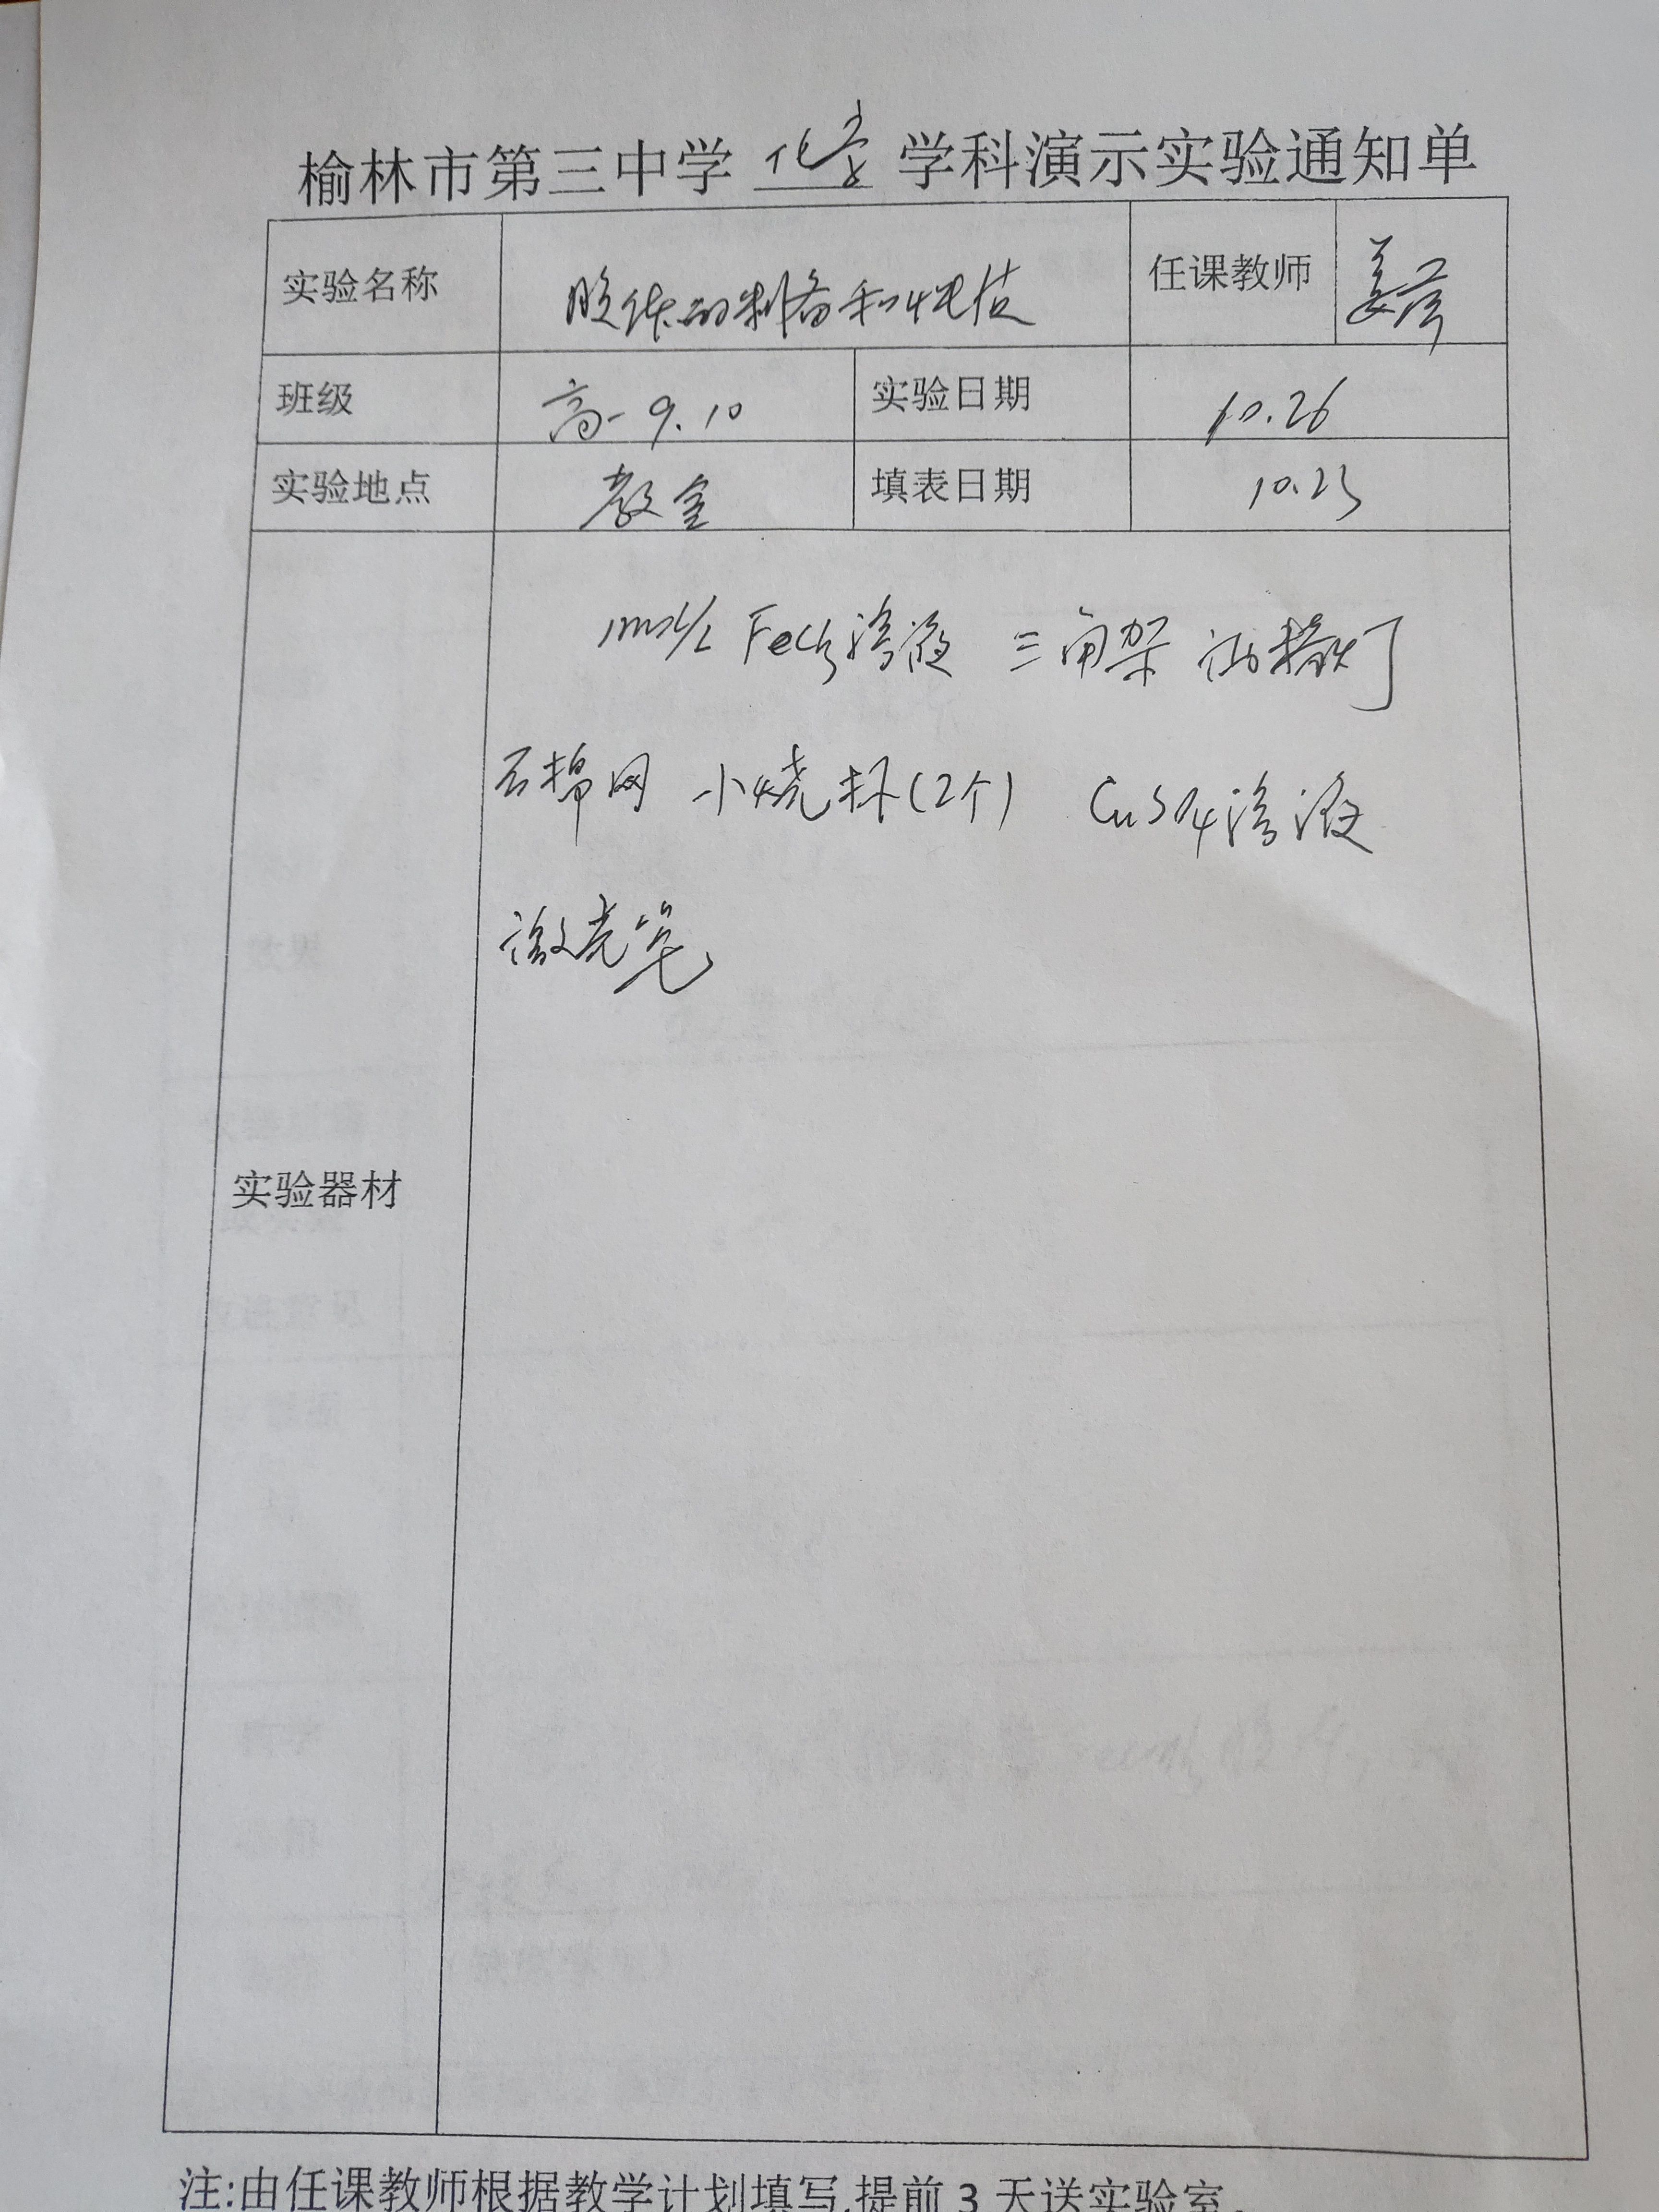 榆林市第三中学 化学 学科演示实验通知单
实验名称 胶体的制备和性质 任课教师 姜
班级 高一 9.10 实验日期 10.26
实验地点 教室 填表日期 10.23
1mol/L FeCl3溶液 三角架 酒精灯
石棉网 小烧杯(2个) CuSO4溶液
激光笔
实验器材
注:由任课教师根据教学计划填写,提前 3 天送实验室。